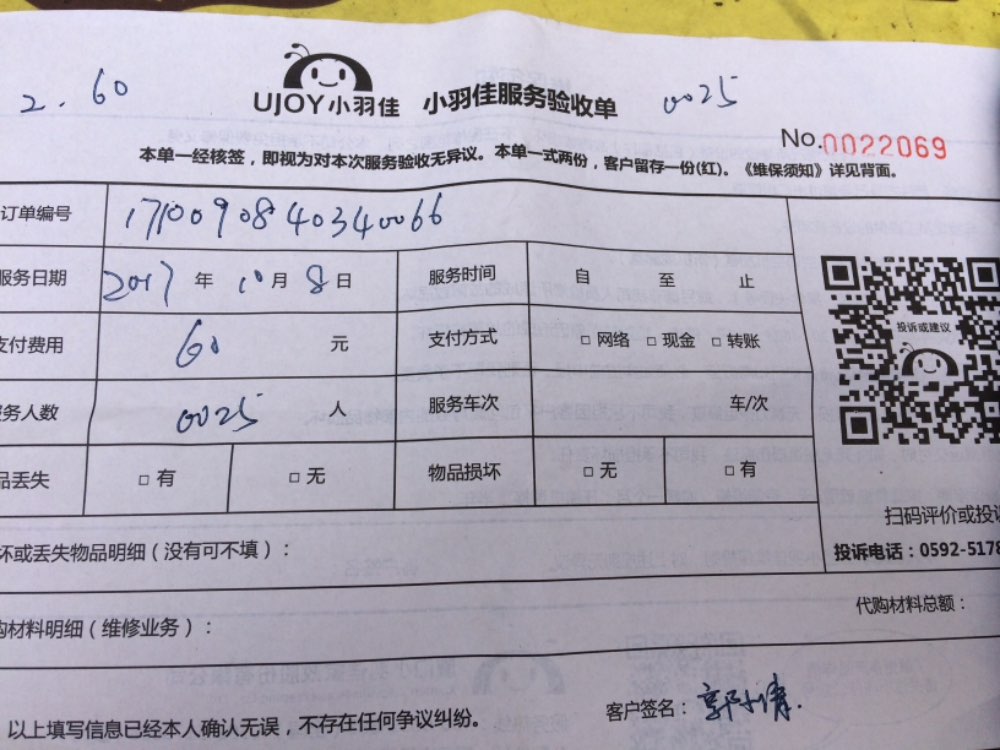 2.60
UJOY小羽佳 小羽佳服务验收单 0025
No.0022069
本单一经核签，即视为对本次服务验收无异议。本单一式两份，客户留存一份(红)。《维保须知》详见背面。
订单编号 1710090840340066
服务日期 2017年10月8日 服务时间 自 至 止
支付费用 60 元 支付方式 □网络 □现金 □转账
务人数 0025 人 服务车次 车/次
品丢失 □有 □无 物品损坏 □无 □有
投诉或建议
扫码评价或投诉
坏或丢失物品明细（没有可不填）：
投诉电话：0592-5178
代购材料总额：
购材料明细（维修业务）：
以上填写信息已经本人确认无误，不存在任何争议纠纷。 客户签名：